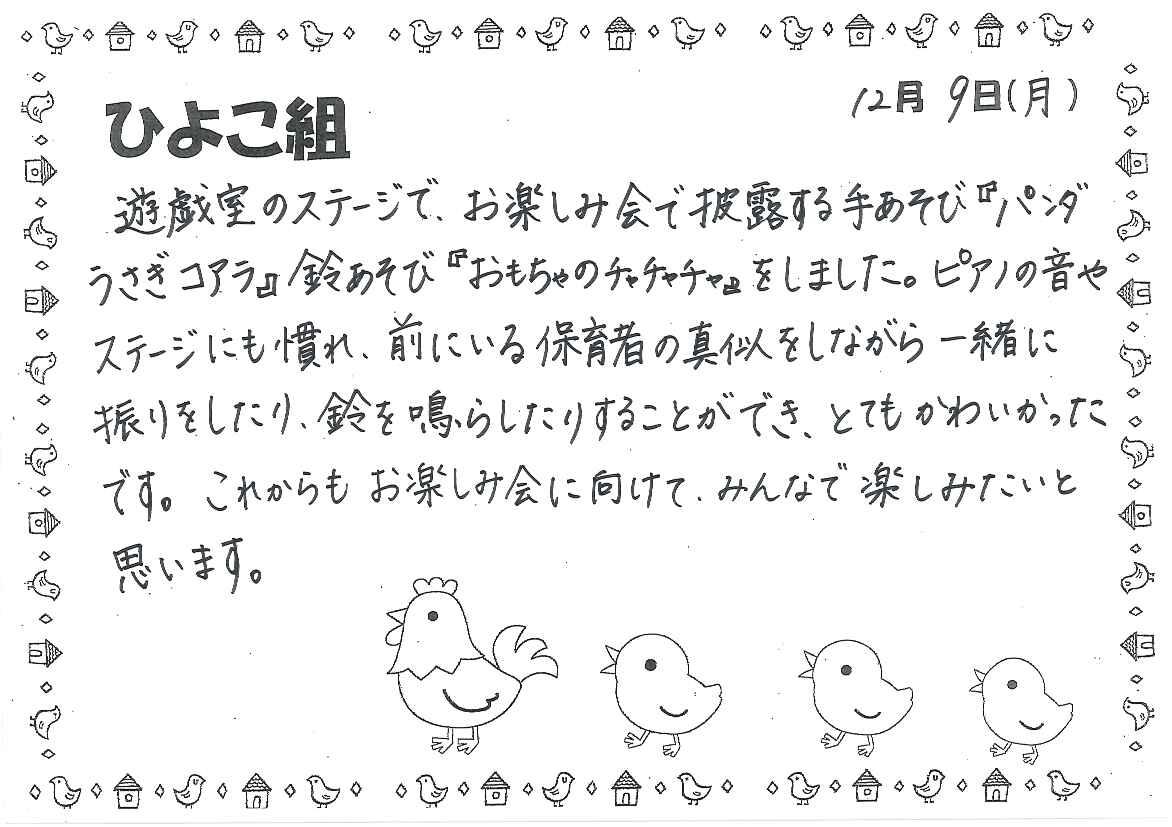 12月 9日(月)
ひよこ組
遊戯室のステージで、お楽しみ会で披露する手あそび『パンダ
うさぎコアラ』鈴あそび『おもちゃのチャチャチャ』をしました。ピアノの音や
ステージにも慣れ、前にいる保育者の真似をしながら一緒に
振りをしたり、鈴を鳴らしたりすることができ、とてもかわいかった
です。これからもお楽しみ会に向けて、みんなで楽しみたいと
思います。